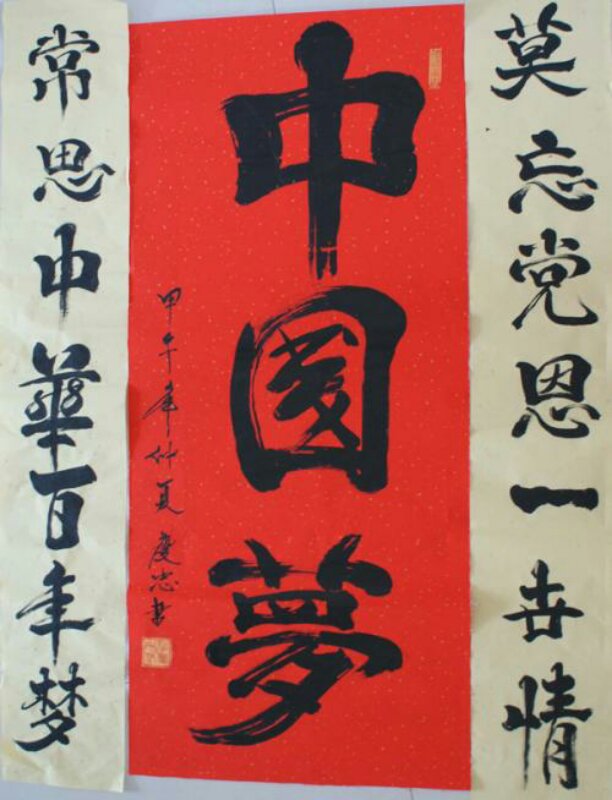 莫忘党恩一世情
中國夢
甲午年仲夏慶忠書
常思中華百年梦